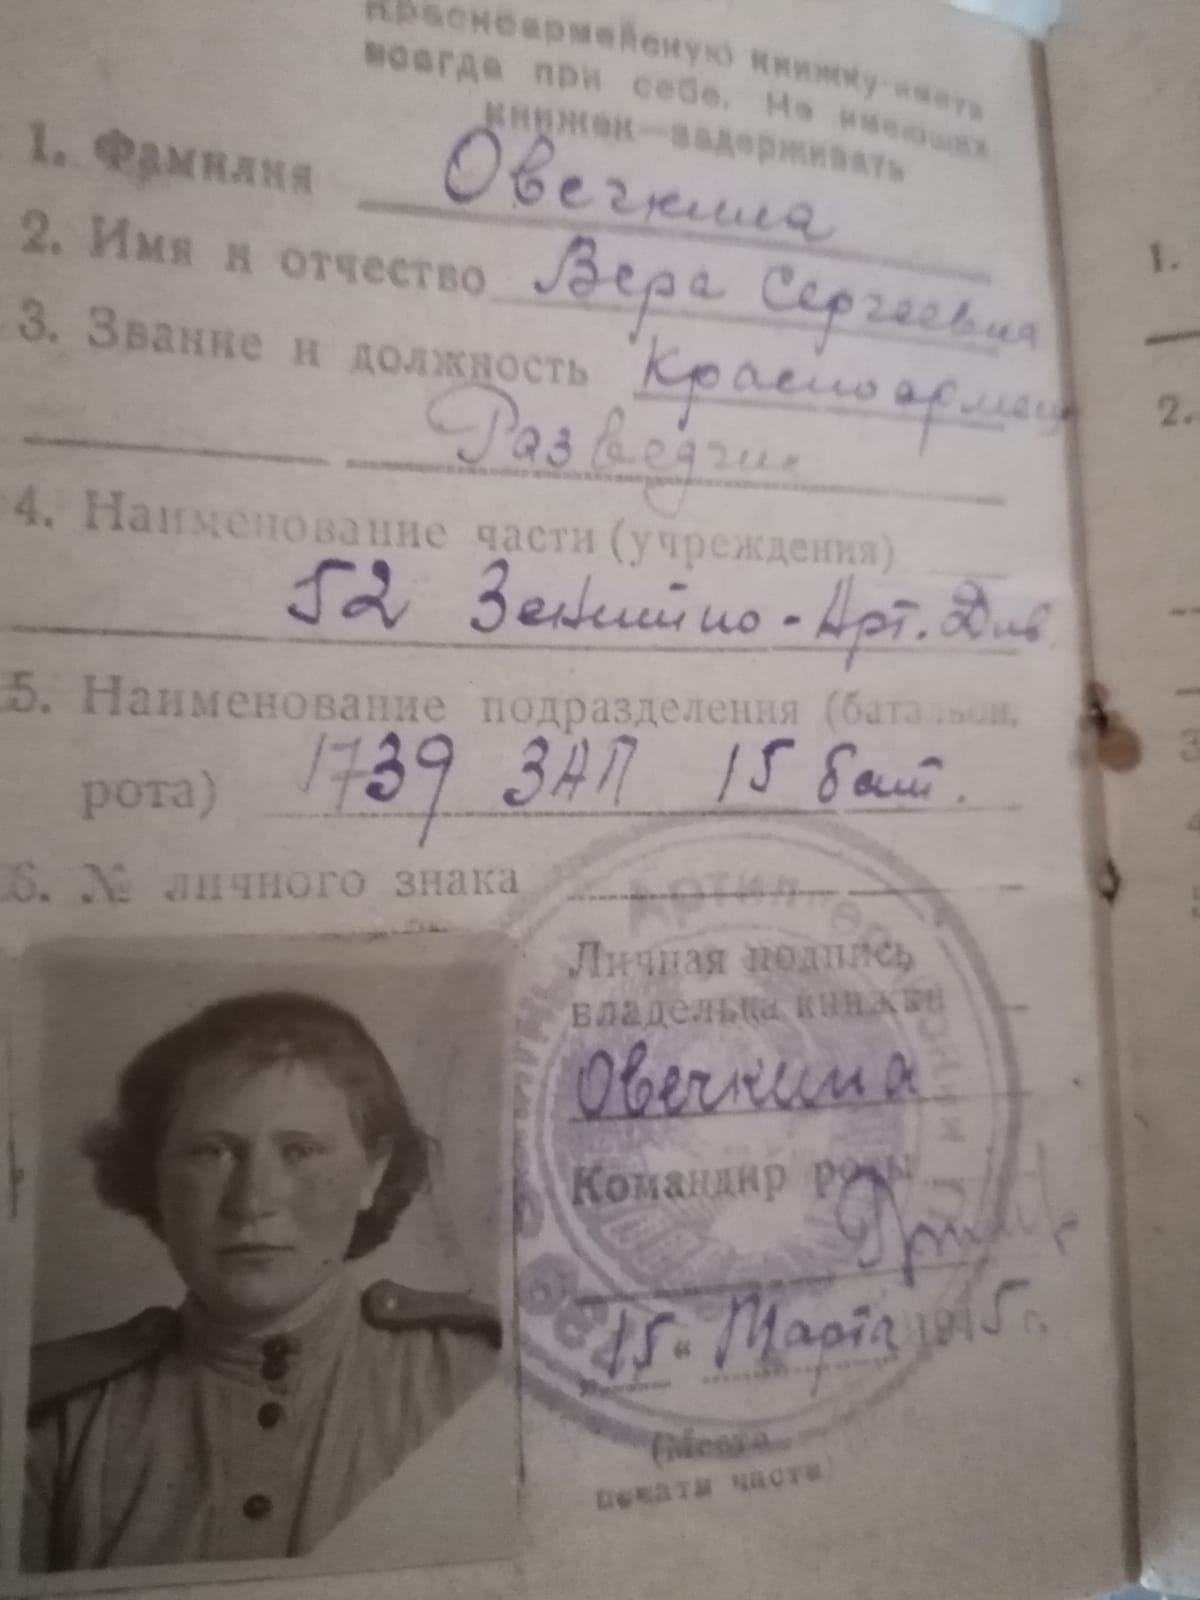 Красноармейскую книжку иметь
всегда при себе. Не имеющих
книжек—задерживать
1. Фамилия Овечкина
2. Имя и отчество Вера Сергеевна
3. Звание и должность Красноармеец
Разведчик
4. Наименование части (учреждения)
52 Зенитно-Арт. Див.
5. Наименование подразделения (батальон,
рота) 1739 ЗАП 15 бат.
6. № личного знака
Личная подпись
владельца книжки
Овечкина
Командир роты
„15“ Марта 1945 г.
(Место
печати части)
1.
2.
3
4